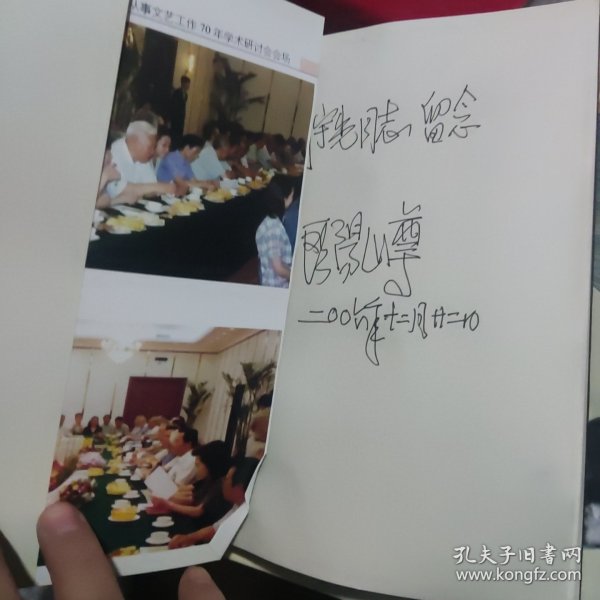 从事文艺工作70年学术研讨会会场
宇光同志 留念
欧阳山尊
二〇〇六年十二月廿二日
孔夫子旧书网
www.kongfz.com